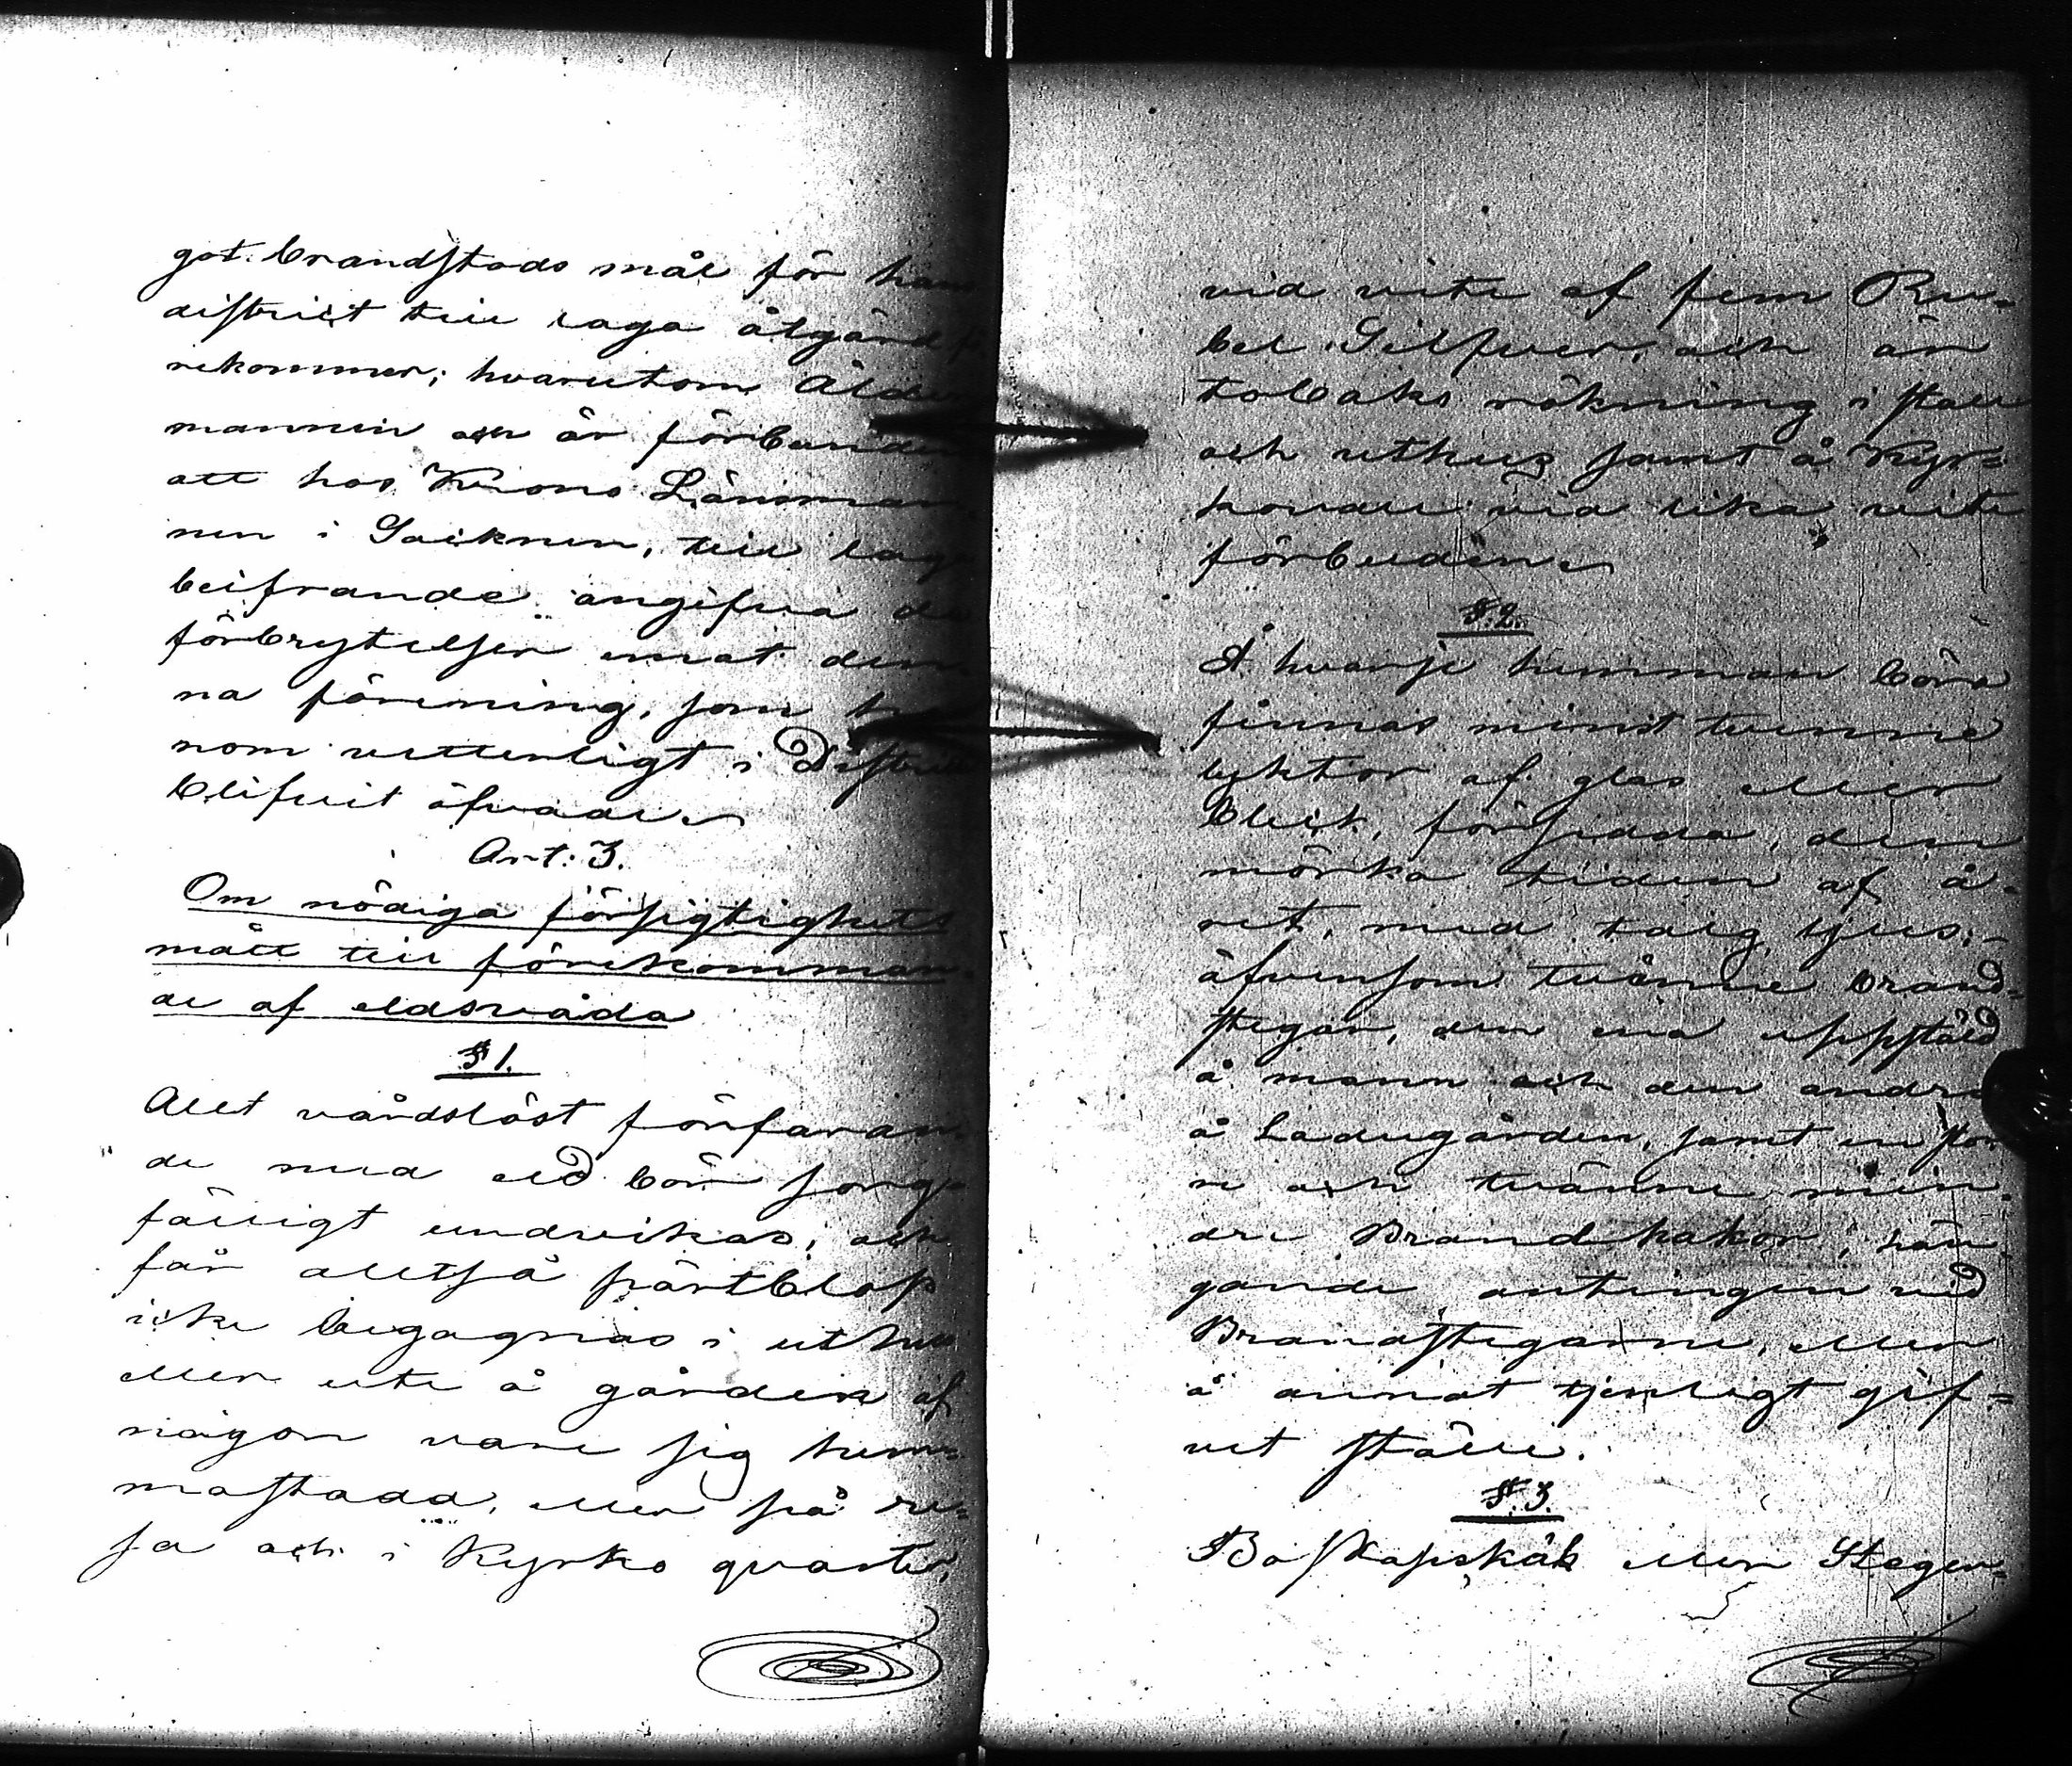 got brandstods mål för hans
district till laga åtgärd fö
rekommer; hvarutom Ålder
mannen och är förbunden
att hos Krono Länsman
nen i Socknen, till laga
beifrande angifva de
förbrytelser emot den
na förening, som ho
nom vetterligt i District
blifvit öfvade.
Art: 3.
Om nödiga försigtighets
mått till förekomman
de af eldsvåda
§ 1.
Allt vårdslöst förfaran
de med eld bör sorg
fälligt undvikas, och
får alltså pärtbloss
icke begagnas i uthus
eller ute å gården af
någon vare sig hem
mastadd, eller på re=
sa och i Kyrko qvarter,
vid vite af fem Ru=
bel Silfver, och är
tobaks rökning i stall
och uthus samt å Kyr=
kovall vid lika vite
förbuden.
§. 2.
Å hvarje hemman böra
finnas minst tvenne
lyktor af glas eller
bleck, försedda, den
mörka tiden af å=
ret, med talg ljus;
äfvensom tvänne brand=
stegar, den ena uppstäld
å mann och den andra
å Ladugården, samt en stör
re och tvänne min=
dre Brandhakor, hän
gande antingen vid
Brandstegarne, eller
å annat tjenligt gif=
vet ställe.
§. 3.
Boskapskåk eller Stegen=